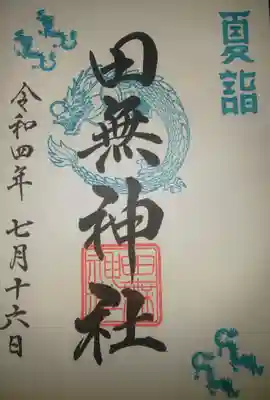 夏詣
田無神社
令和四年 七月十六日
田無神社